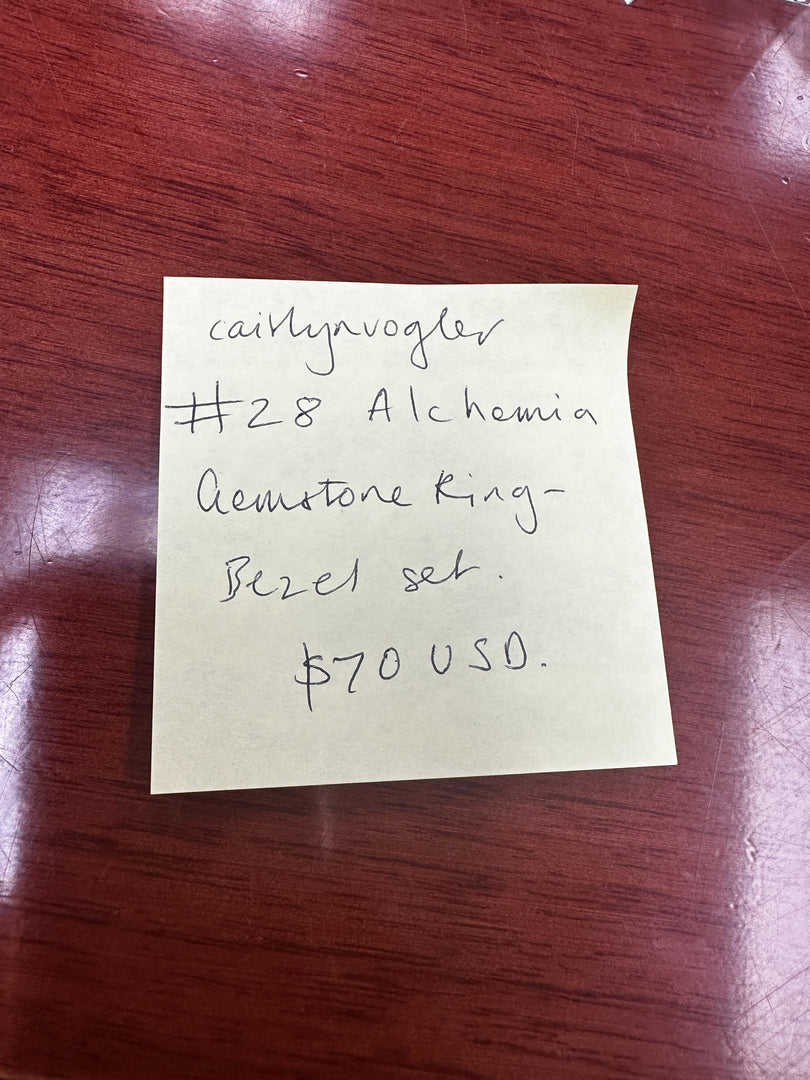 caitlynvogler
#28 Alchemia
Gemstone Ring-
Bezel set.
$70 USD.